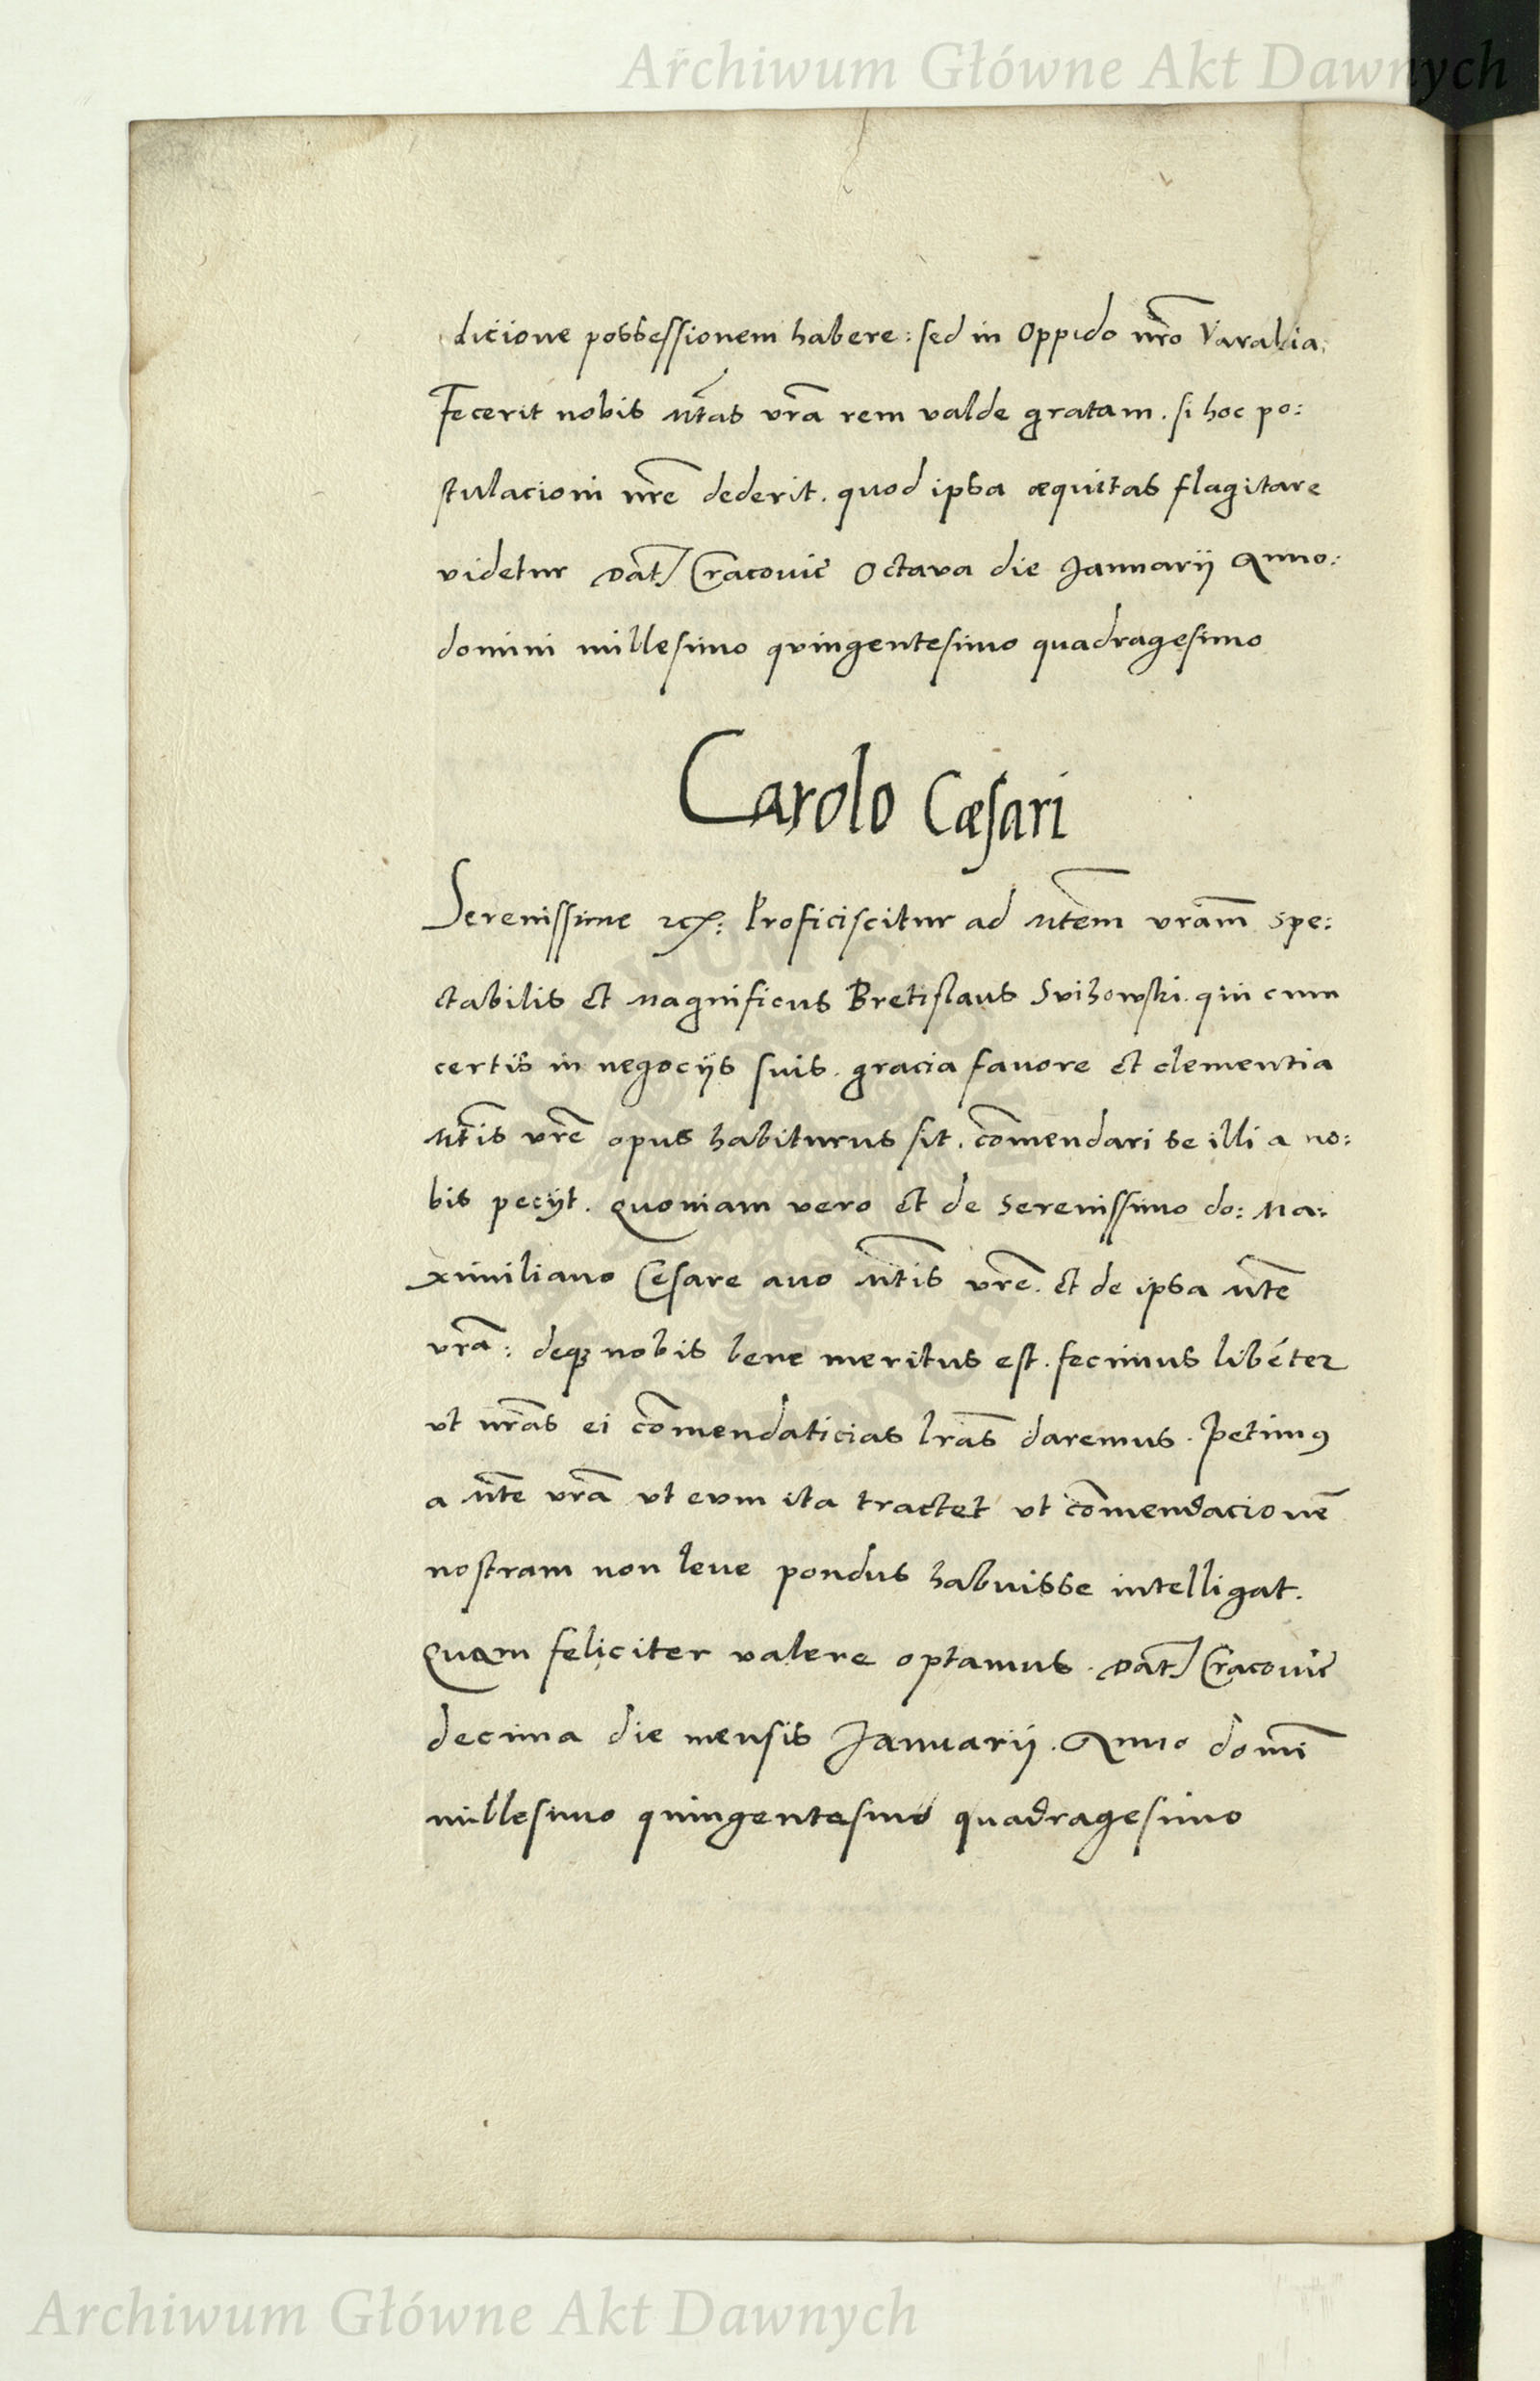 Archiwum Główne Akt Dawnych
dicione possessionem habere: sed in Oppido nro Varalia.
Fecerit nobis Mtas vra rem valde gratam. si hoc po:
stulacioni nre dederit. quod ipsa æquitas flagitare
videtur Dat Cracovie Octava die Januarii Anno:
domini millesimo quingentesimo quadragesimo
Carolo Cæsari
Serenissime Proficiscitur ad Mtem vram spe:
ctabilis et Magnificus Bretislaus Svihowski. qui cum
certis in negociis suis. gracia favore et clementia
Mtis vre opus habiturus sit. comendari se illi a no:
bis peciit. Quoniam vero et de Serenissimo do: Ma:
ximiliano Cesare avo Mtis vre. et de ipsa Mte
vra: deqz nobis bene meritus est. fecimus libéter
vt nras ei comendaticias lras daremus. Petimus
a Mte vra vt eum ita tractet vt comendacione
nostram non leve pondus habuisse intelligat.
Quam feliciter valere optamus. Dat Cracovie
decima die mensis Januarii. Anno domi
millesimo quingentesimo quadragesimo
Archiwum Główne Akt Dawnych